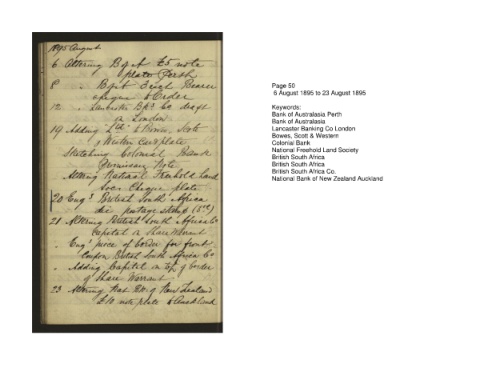 1895 August
6 Altering Bk of A £5 note
plate Perth
8 " Bk of A Bearer
cheque to Order
12 " Lancaster Bkg Co draft
on London
19 Adding "Ltd" to Bowes, Scott
& Western card plate
Sketching Colonial Bank
Note
Altering National Freehold Land
Socy Cheque plate
20 Engg British South Africa
die postage stamp
21 Altering British South Africa Co
Capital on Share Warrant
" Engg piece of border for front
Coupon British South Africa Co
" Adding Capital on top of border
of Share Warrant
23 Altering Nat Bk of New Zealand
note plate to Auckland
Page 50
6 August 1895 to 23 August 1895
Keywords:
Bank of Australasia Perth
Bank of Australasia
Lancaster Banking Co London
Bowes, Scott & Western
Colonial Bank
National Freehold Land Society
British South Africa
British South Africa
British South Africa Co.
National Bank of New Zealand Auckland